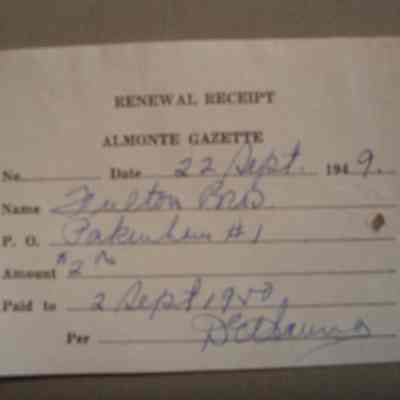 RENEWAL RECEIPT
ALMONTE GAZETTE
No. Date 22 Sept. 1949.
Name Fulton Bros.
P. O. Pakenham #1
Amount $2
Paid to 2 Sept 1950
Per